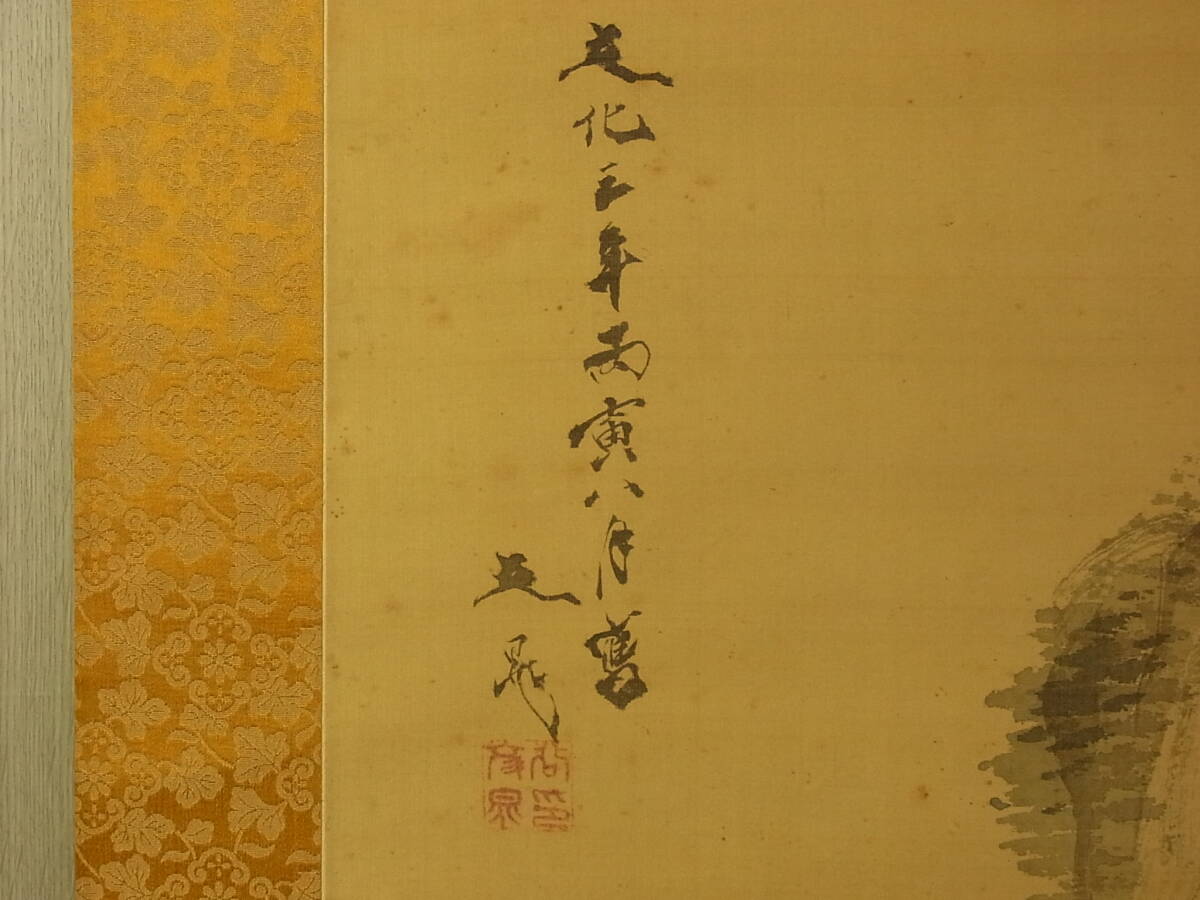 文化三年丙寅八月寫
文晁